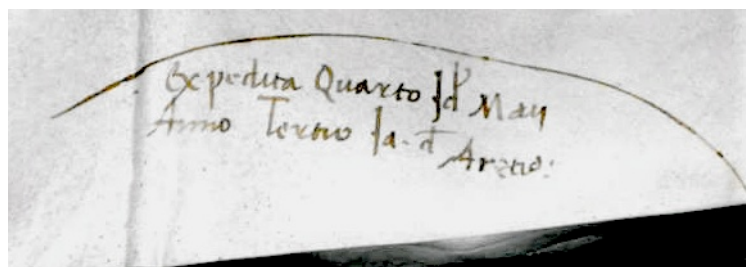 Expedita Quarto Id Maii
Anno Tertio Ia. d Aretio: